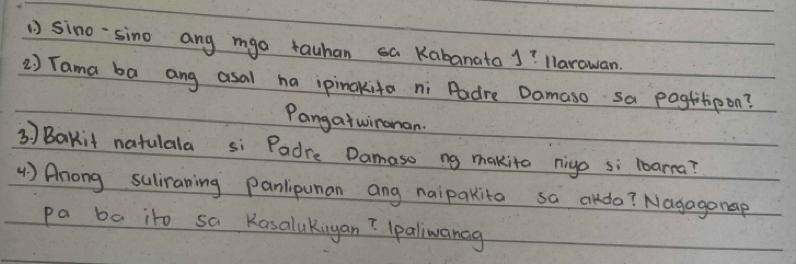 1.) Sino-sino ang mga tauhan sa Kabanata 1? Ilarawan.
2.) Tama ba ang asal na ipinakita ni Padre Damaso sa pagtitipon?
Pangatwiranan.
3.) Bakit natulala si Padre Damaso ng makita niya si Ibarra?
4.) Anong suliraning panlipunan ang naipakita sa akda? Nagaganap
pa ba ito sa kasalukuyan? Ipaliwanag